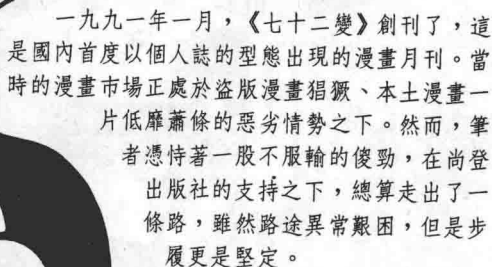 一九九一年一月，《七十二變》創刊了，這
是國內首度以個人誌的型態出現的漫畫月刊。當
時的漫畫市場正處於盜版漫畫猖獗、本土漫畫一
片低靡蕭條的惡劣情勢之下。然而，筆
者憑恃著一股不服輸的傻勁，在尚登
出版社的支持之下，總算走出了一
條路，雖然路途異常艱困，但是步
履更是堅定。